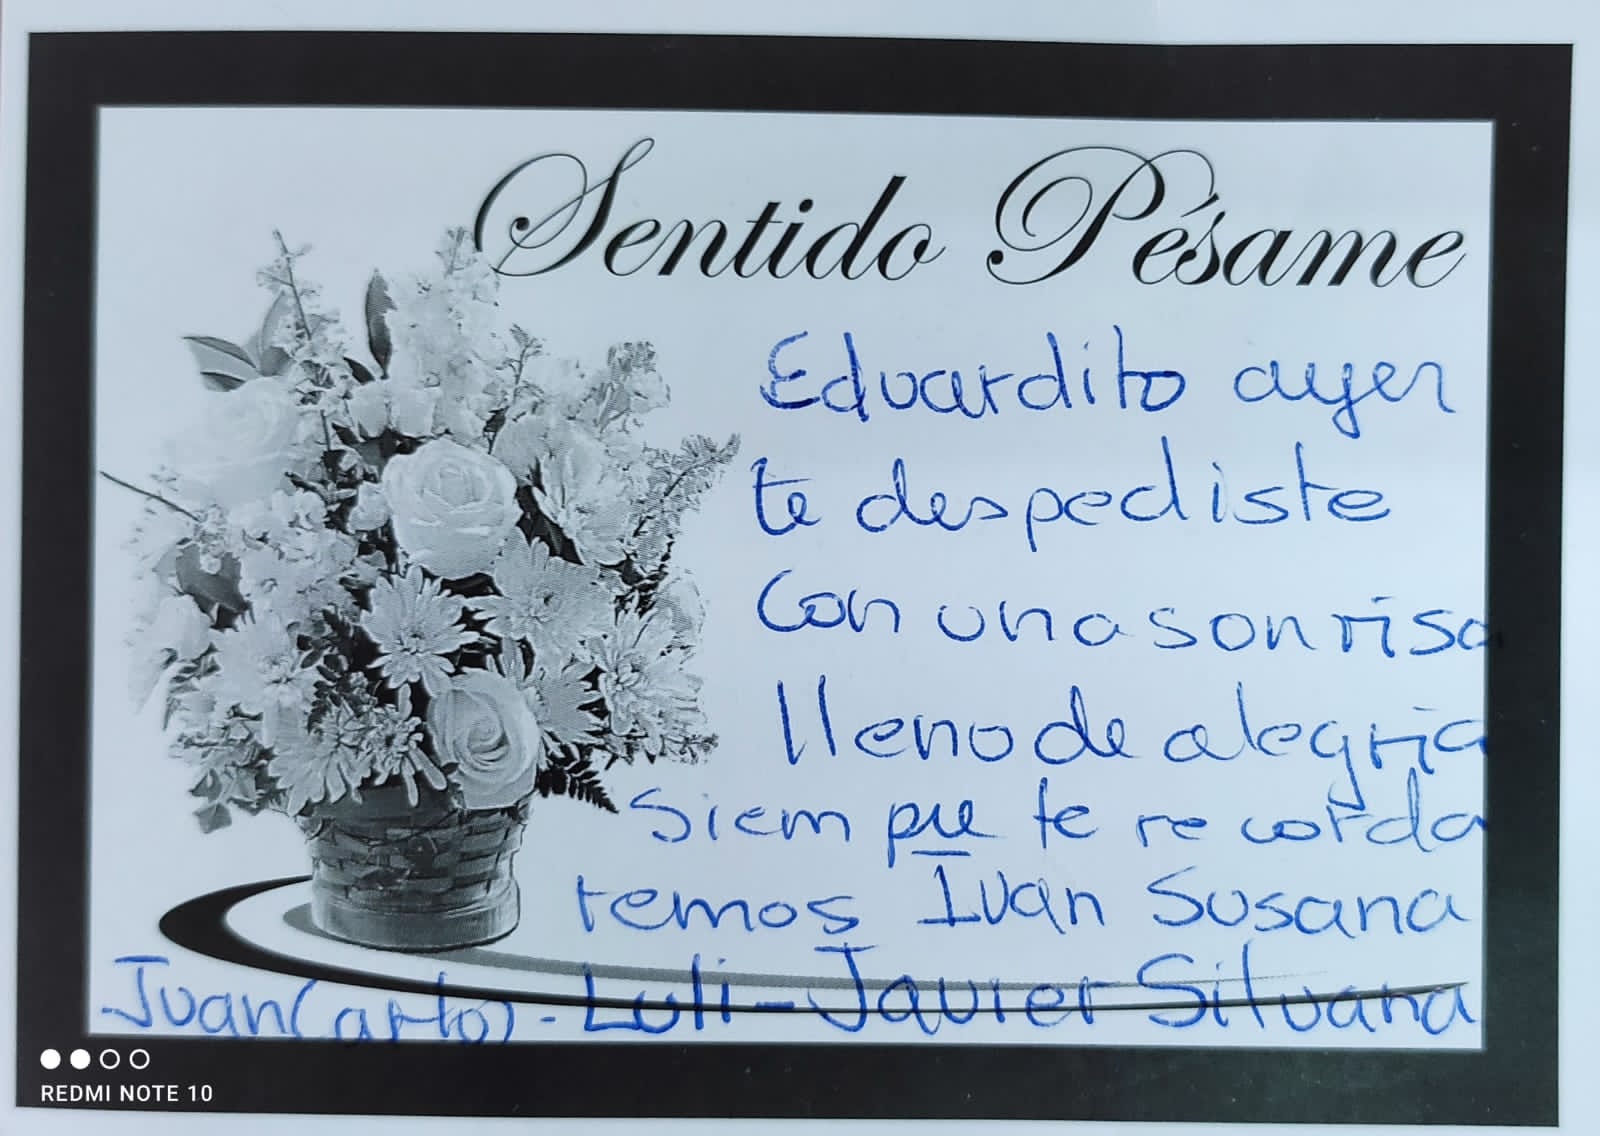 Sentido Pésame
Eduardito ayer
te despediste
con una sonrisa
lleno de alegria
siempre te recorda
remos Ivan Susana
Juan Carlos - Luli - Javier Silvana
REDMI NOTE 10